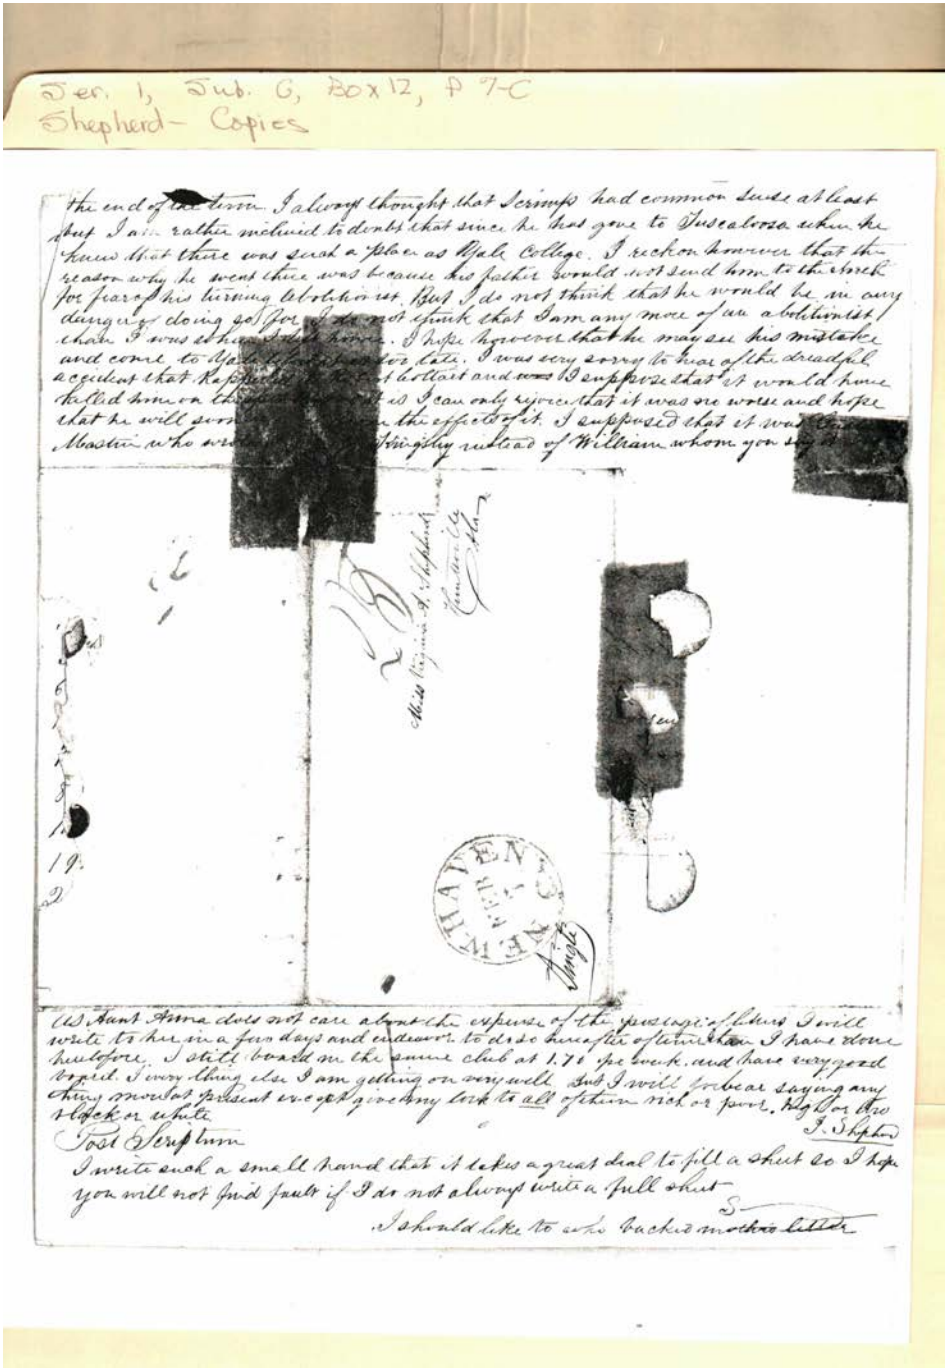 Ser. 1, Sub. G, Box 12, F 7-C
Shepherd- Copies
the end of the term. I always thought that Scrimps had common sense at least
but I am rather inclined to doubt that since he has gone to Tuscaloosa when he
knew that there was such a place as Yale College. I reckon however that the
reason why he went there was because his father would not send him to the North
for fear of his turning abolitionist. But I do not think that he would be in any
danger of doing so for I do not think that I am any more of an abolitionist
than I was when I left home. I hope however that he may see his mistake
and come to Yale before it is too late. I was very sorry to hear of the dreadful
accident that happened to and was I suppose that it would have
killed him on the is I can only rejoice that it was no worse and hope
that he will soon the effects of it. I supposed that it was
Mastin who wrote instead of William whom you say
25
Miss Virginia A. Shepherd
Huntsville
Ala
19
2
NEW HAVEN CT
FEB
Single
As Aunt Anna does not care about the expense of the postage of letters I will
write to her in a few days and endeavor to do so hereafter oftener than I have done
heretofore. I still board in the same club at 1.75 per week. and have very good
board. I every thing else I am getting on very well But I will forbear saying any
thing more at present except give my love to all of them rich or poor, high or low
black or white
J. Shepherd
Post Scriptum
I write such a small hand that it takes a great deal to fill a sheet so I hope
you will not find fault if I do not always write a full sheet
S
I should like to who backed mothers letter